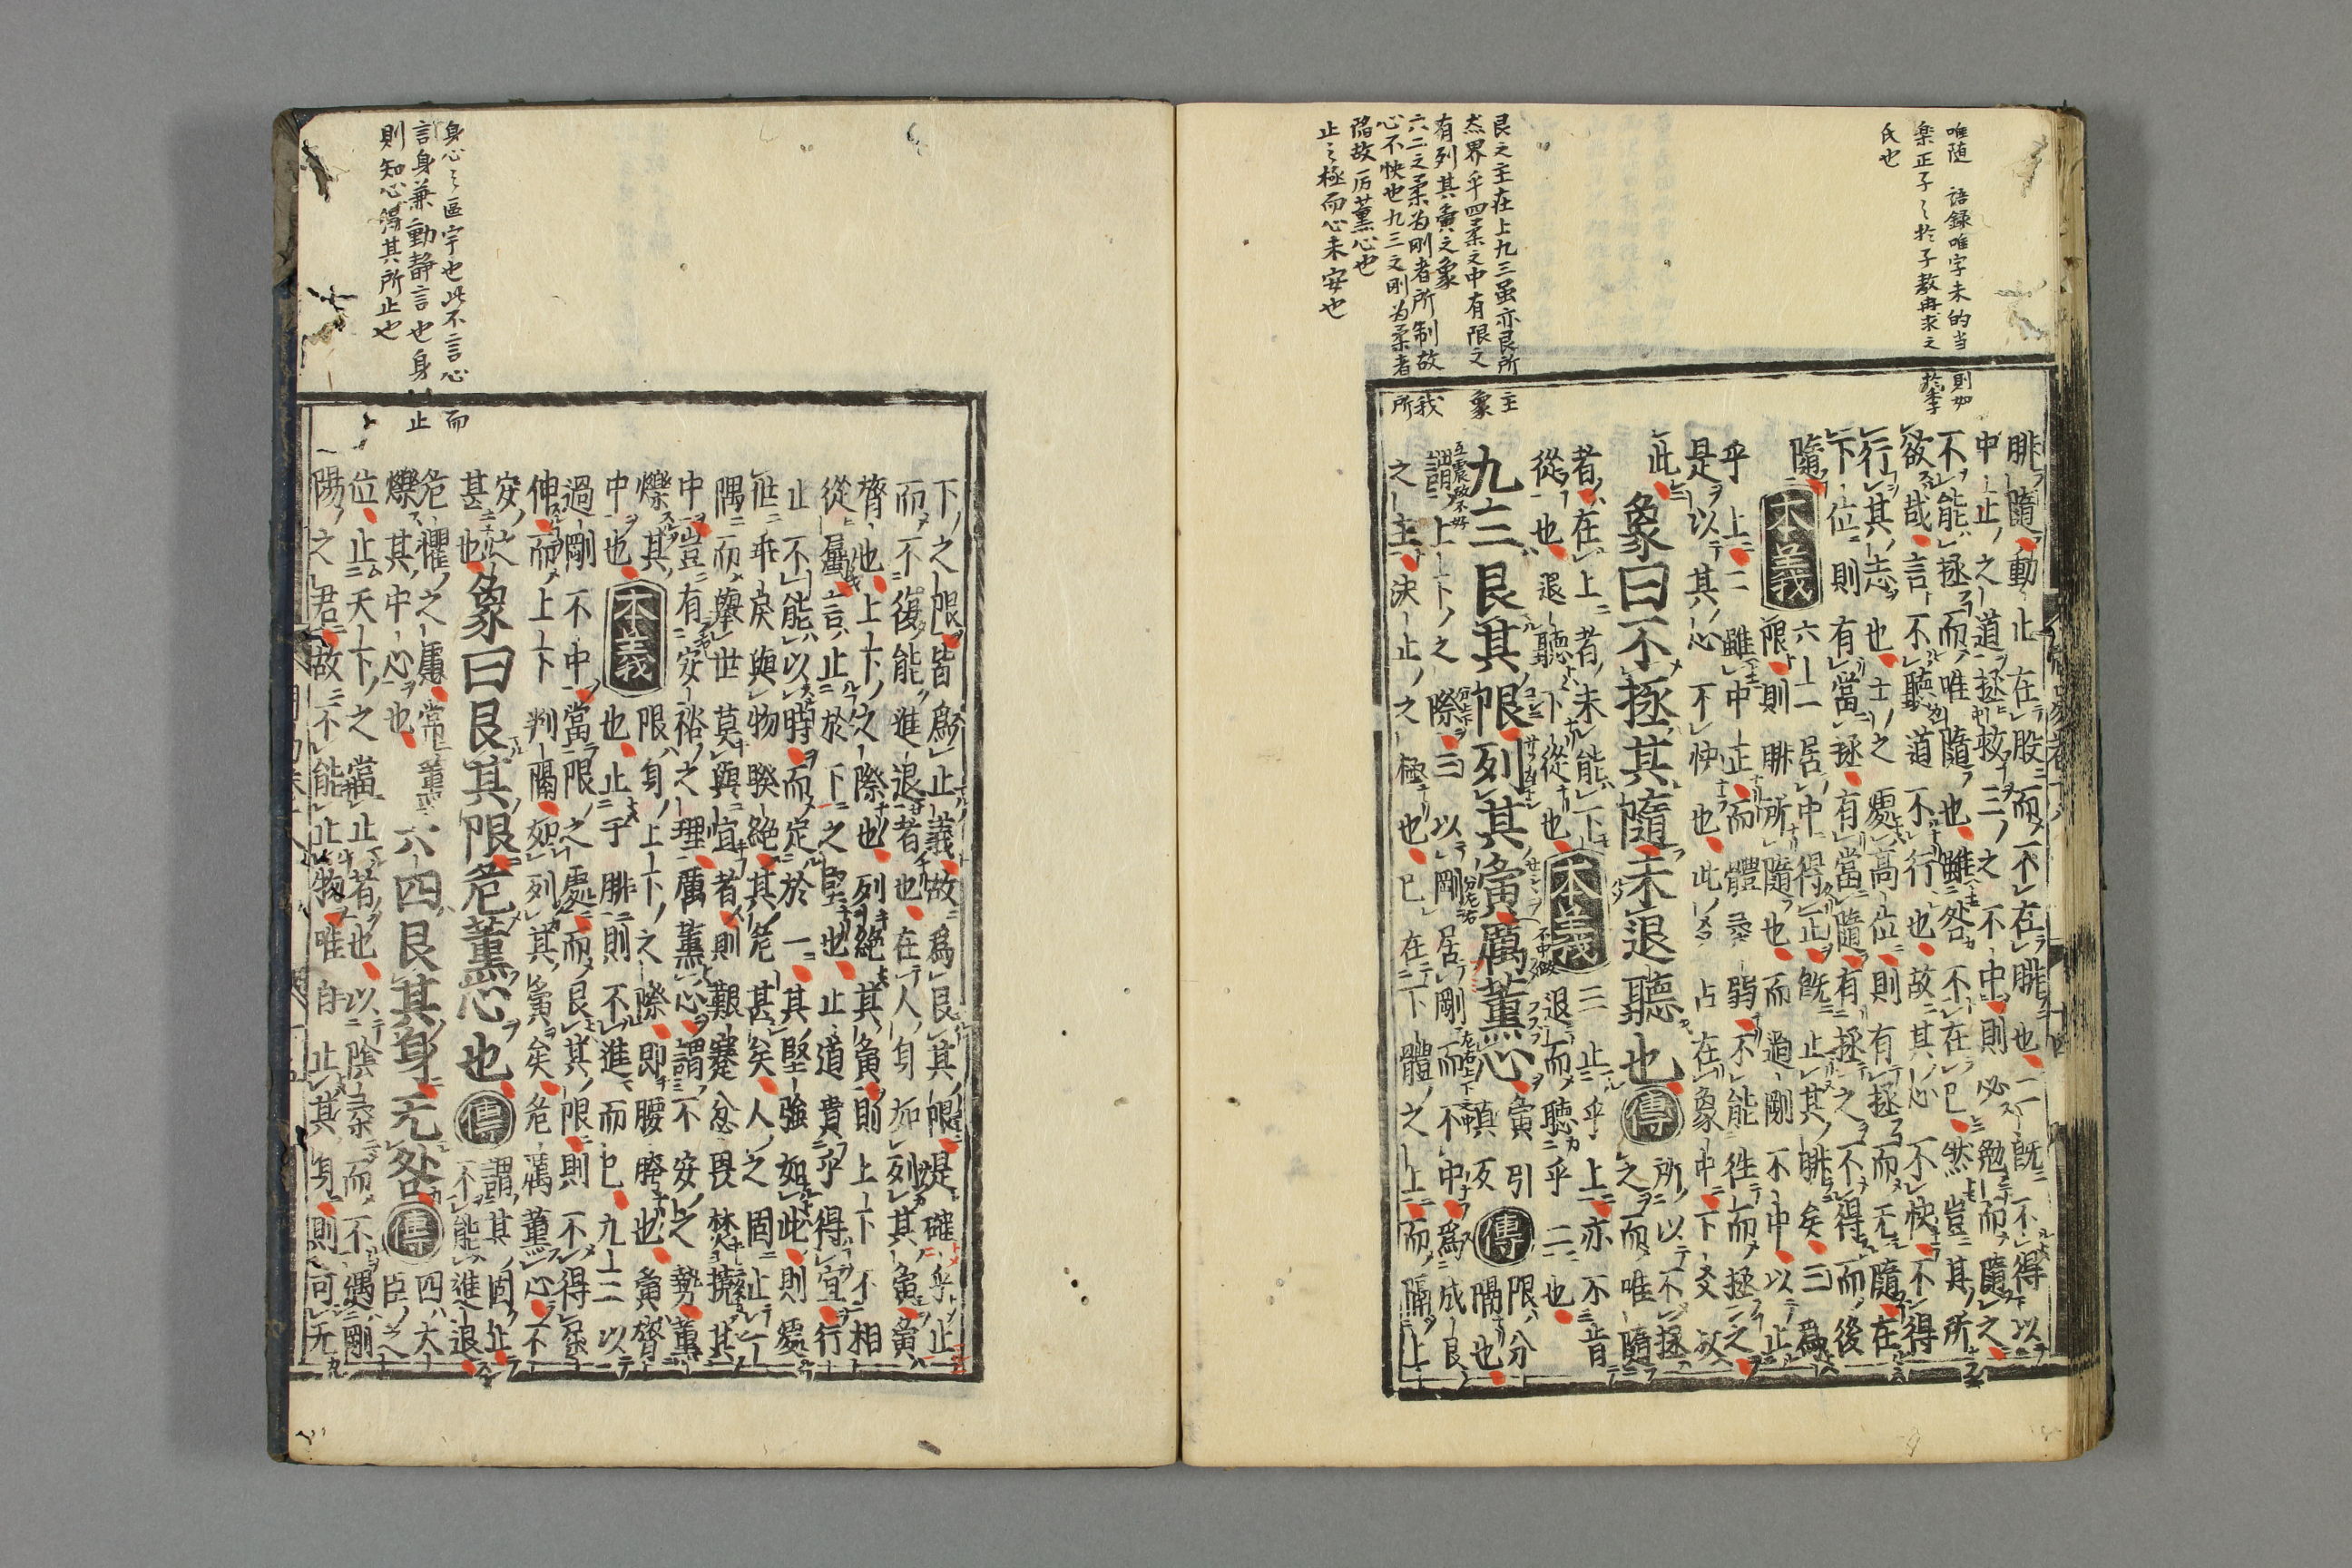 唯随　語録唯字未的当則如
楽正子之於子敖冉求之於季
氏也
艮之主在上九三虽亦艮所主
炁界乎四柔之中有限之象
有列其夤之象
六二之柔为刚者所制故我
心不快也九三之刚为柔者所
隔故厉薫心也
止之極而心未安也
腓隨動止在股而不在腓也二既不得以
中止之道拯救三之不中則必勉而隨之
不能拯而唯隨也雖咎不在己然豈其所
欲哉言不聽道不行也故其心不快不得
行其志也士之處高位則有拯而无隨在
下位則有當拯有當隨有拯之不得而後
隨 本義 六二居中得正既止其腓矣三爲
限則腓所隨也而過剛不中以止
乎上二雖中正而體柔弱不能往而拯之
是以其心不快也此爻占在象中下爻放
此
象曰不拯其隨未退聽也 傳 所以不拯
之而唯隨
者在上者未能下
從也退聽下從也 本義 三止乎上亦不肯
退而聽乎二也
九三艮其限列其夤厲薰心 夤引
眞反 傳 限分
隔也
上下之際三以剛居剛而不中爲成艮
之主決止之極也已在下體之上而隔上
身心之區宇也此不言心而
言身兼動静言也身止
則知心得其所止也
下之限皆爲止義故爲艮其限是確乎止
而不復能進退者也在人身如列其夤夤
膂也上下之際也列絶其夤則上下不相
從屬言止於下之堅也止道貴乎得宜行
止不能以時而定於一其堅強如此則處
世乖戾與物睽絶其危甚矣人之固止一
隅而舉世莫與宜者則艱蹇忿畏焚撓其
中豈有安裕之理厲薰心謂不安之勢薰
爍其
中也 本義 限身上下之際即腰胯也夤膂
也止于腓則不進而已九三以
過剛不中當限之處而艮其限則不得屈
伸而上下判隔如列其夤矣危厲薰心不
安之
甚也 象曰艮其限危薰心也 傳 謂其固止
不能進退
危懼之慮常薰
爍其中心也 六四艮其身无咎 傳 四大
臣之
位止天下之當止者也以陰柔而不遇剛
陽之君故不能止物唯自止其身則可无